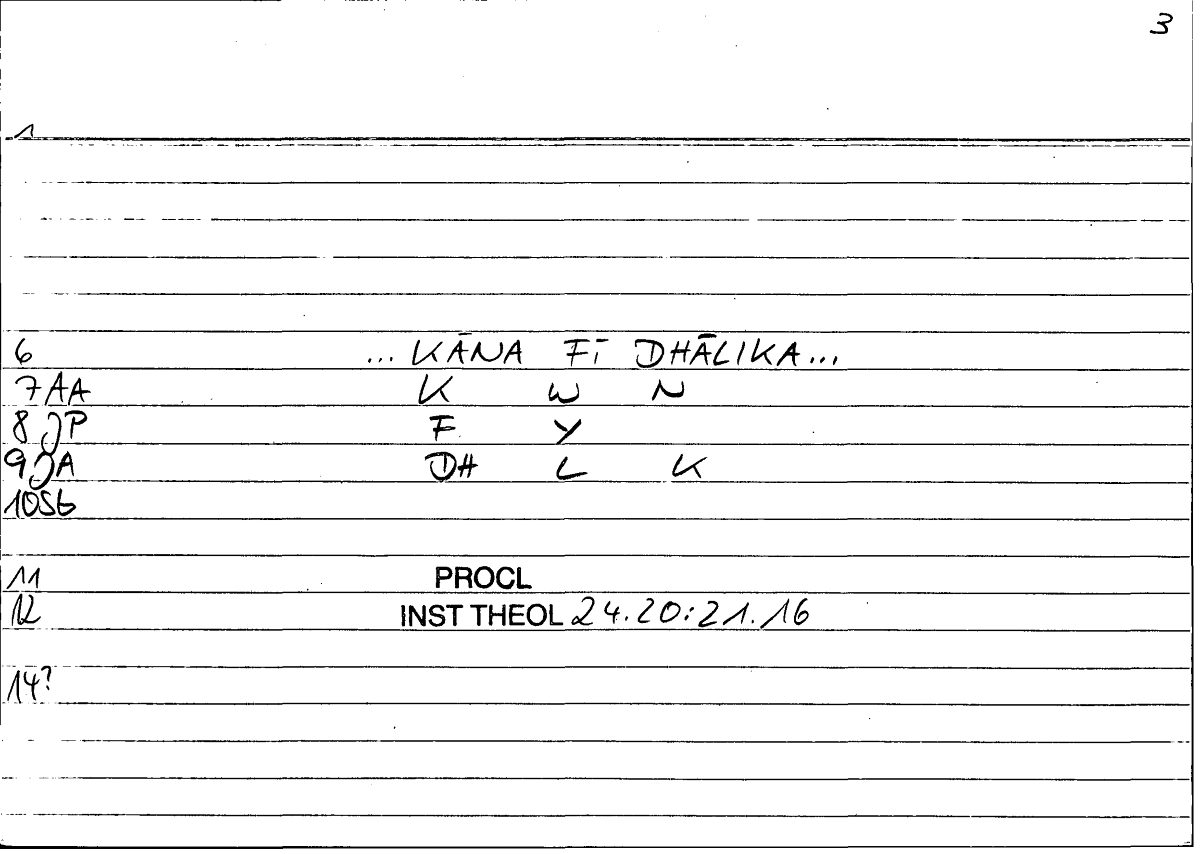 3
1
6 ... KĀNA FĪ DHĀLIKA...
7AA K W N
8JP F Y
9JA DH L K
10SB
11 PROCL
12 INST THEOL 24.20:21.16
14?